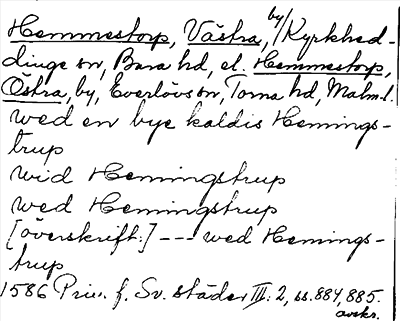 Hemmestorp, Västra, by, Kyrkhed-
dinge sn, Bara hd, el. Hemmestorp,
Östra, by, Everlövs sn, Torna hd, Malm. l.
wed en bye kaldis Hemings-
trup
wid Hemingstrup
wed Hemingstrup
[överskrift:] --- wed Hemings-
trup
1586 Priv. f. Sv. städer III: 2, ss. 884, 885.
avskr.